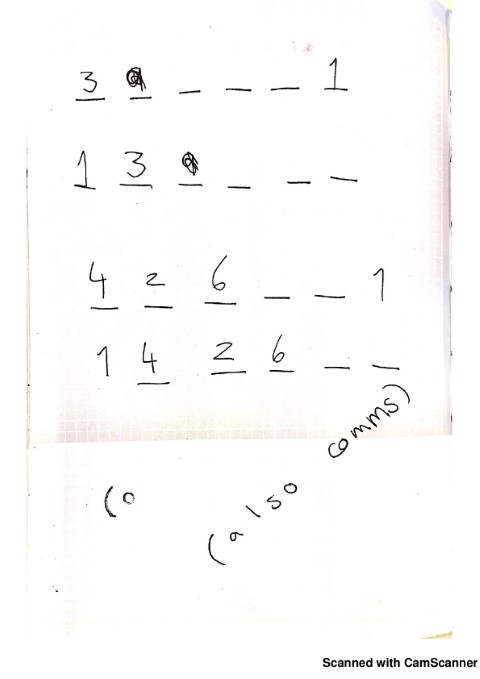 3 _ _ _ _ 1
1 3 _ _ _ _
4 2 6 _ _ 1
1 4 2 6 _ _
(o
(also comms)
Scanned with CamScanner